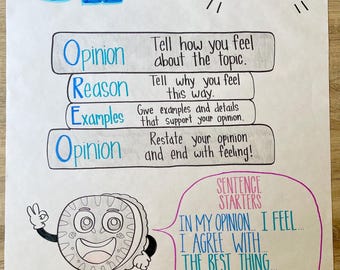 Opinion Tell how you feel
about the topic.
Reason Tell why you feel
this way.
Examples Give examples and details
that support your opinion.
Opinion Restate your opinion
and end with feeling!
SENTENCE
STARTERS
IN MY OPINION... I FEEL...
I AGREE WITH...
THE BEST THING